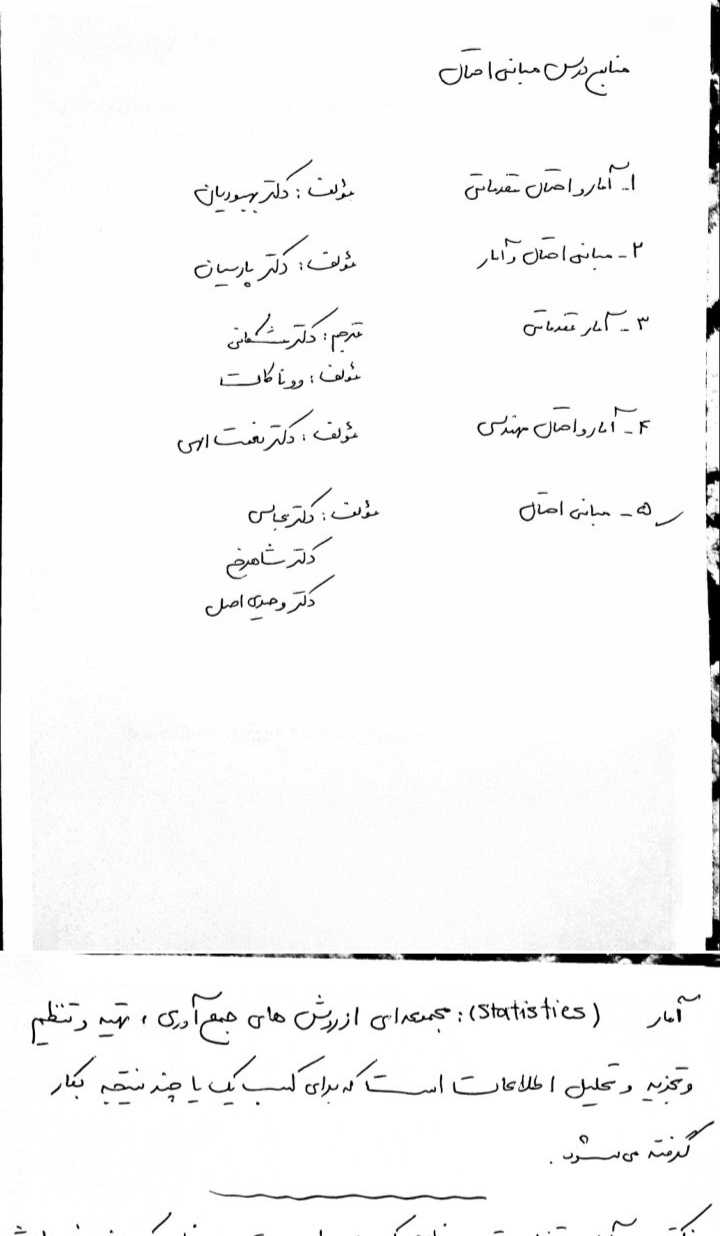 منابع درس مبانی احتمال
۱- آمار و احتمال مقدماتی مؤلف: دکتر بهبودیان
۲- مبانی احتمال و آمار مؤلف: دکتر پارسیان
۳- آمار مقدماتی مترجم: دکتر مشکانی
مؤلف: ووناکات
۴- آمار و احتمال مهندسی مؤلف: دکتر نعمت الهی
۵- مبانی احتمال مؤلف: دکتر عباس
دکتر شاهرخ
دکتر وحیدی اصل
آمار (Statistics): مجموعه‌ای از روش های جمع آوری، تهیه و تنظیم
و تجزیه و تحلیل اطلاعات است که برای کسب یک یا چند نتیجه بکار
گرفته می شود.